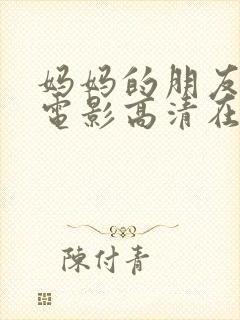 妈妈的朋友
電影高清在
陳付青